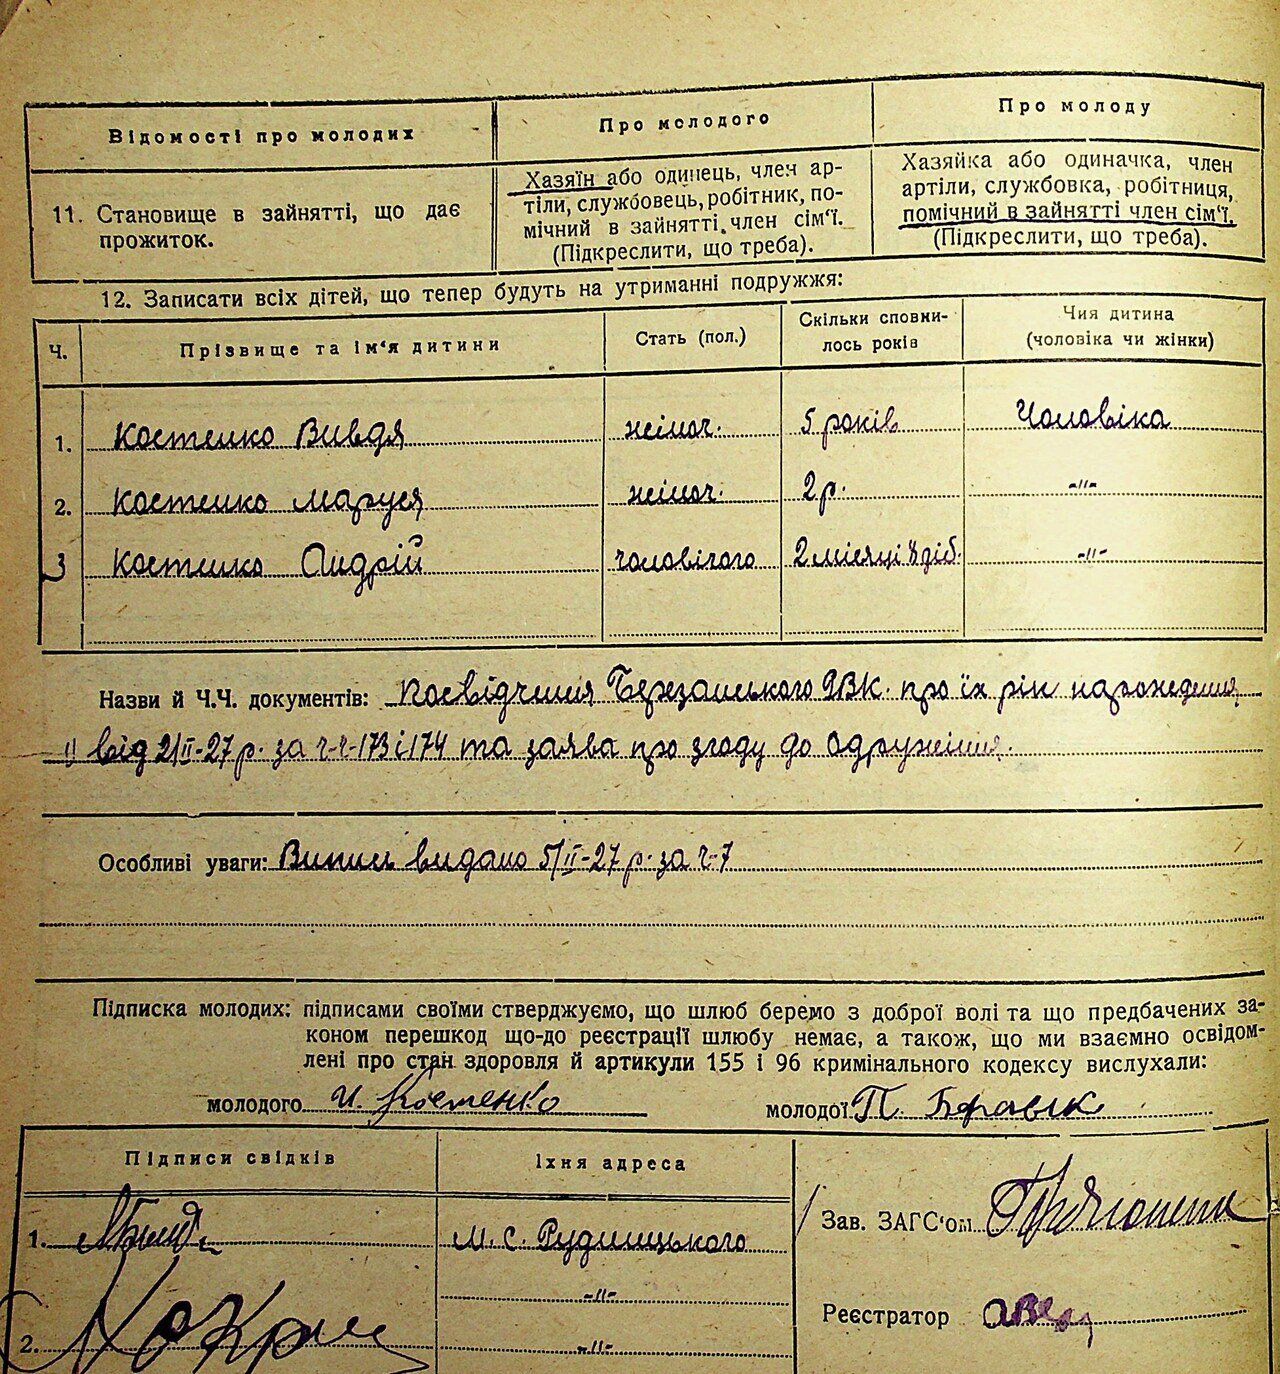 Відомості про молодих
Про молодого
Про молоду
11. Становище в зайнятті, що дає
прожиток.
Хазяїн або одинець, член ар-
тіли, службовець, робітник, по-
мічний в зайнятті член сім'ї.
(Підкреслити, що треба).
Хазяйка або одиначка, член
артіли, службовка, робітниця,
помічний в зайнятті член сім'ї.
(Підкреслити, що треба).
12. Записати всіх дітей, що тепер будуть на утриманні подружжя:
Ч.
Прізвище та ім'я дитини
Стать (пол.)
Скільки сповни-
лось років
Чия дитина
(чоловіка чи жінки)
1. Костенко Вивдя жіноч. 5 років Чоловіка
2. Костенко Маруся жіноч. 2 р. -"-
3 Костенко Андрій чоловічого 2 місяці 8 діб. -"-
Назви й Ч.Ч. документів: Посвідчення Березанського РВК. про їх рік народження
від 2/II-27 р. за ч-ч-173 і 174 та заява про згоду до одруження.
Особливі уваги: Випис видано 5/II-27 р. за ч-7
Підписка молодих: підписами своїми стверджуємо, що шлюб беремо з доброї волі та що предбачених за-
коном перешкод що-до реєстрації шлюбу немає, а також, що ми взаємно освідом-
лені про стан здоровля й артикули 155 і 96 кримінального кодексу вислухали:
молодого И. Костенко молодої П. Бравік
Підписи свідків
Їхня адреса
1.
М. С. Рудницького
-"-
2.
-"-
Зав. ЗАГС'ом
Реєстратор